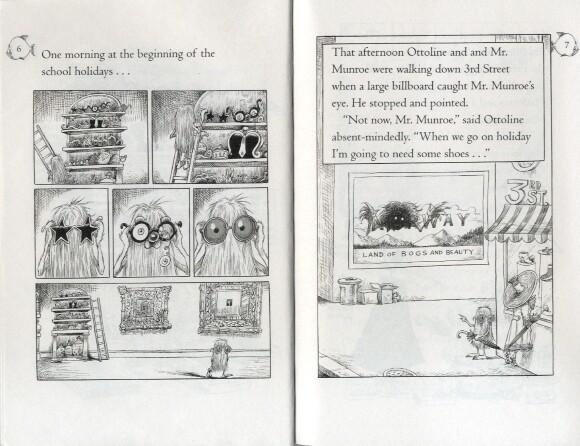 6
One morning at the beginning of the
school holidays . . .
7
That afternoon Ottoline and and Mr.
Munroe were walking down 3rd Street
when a large billboard caught Mr. Munroe's
eye. He stopped and pointed.
"Not now, Mr. Munroe," said Ottoline
absent-mindedly. "When we go on holiday
I'm going to need some shoes . . ."
3RD
ST.
LAND OF BOGS AND BEAUTY